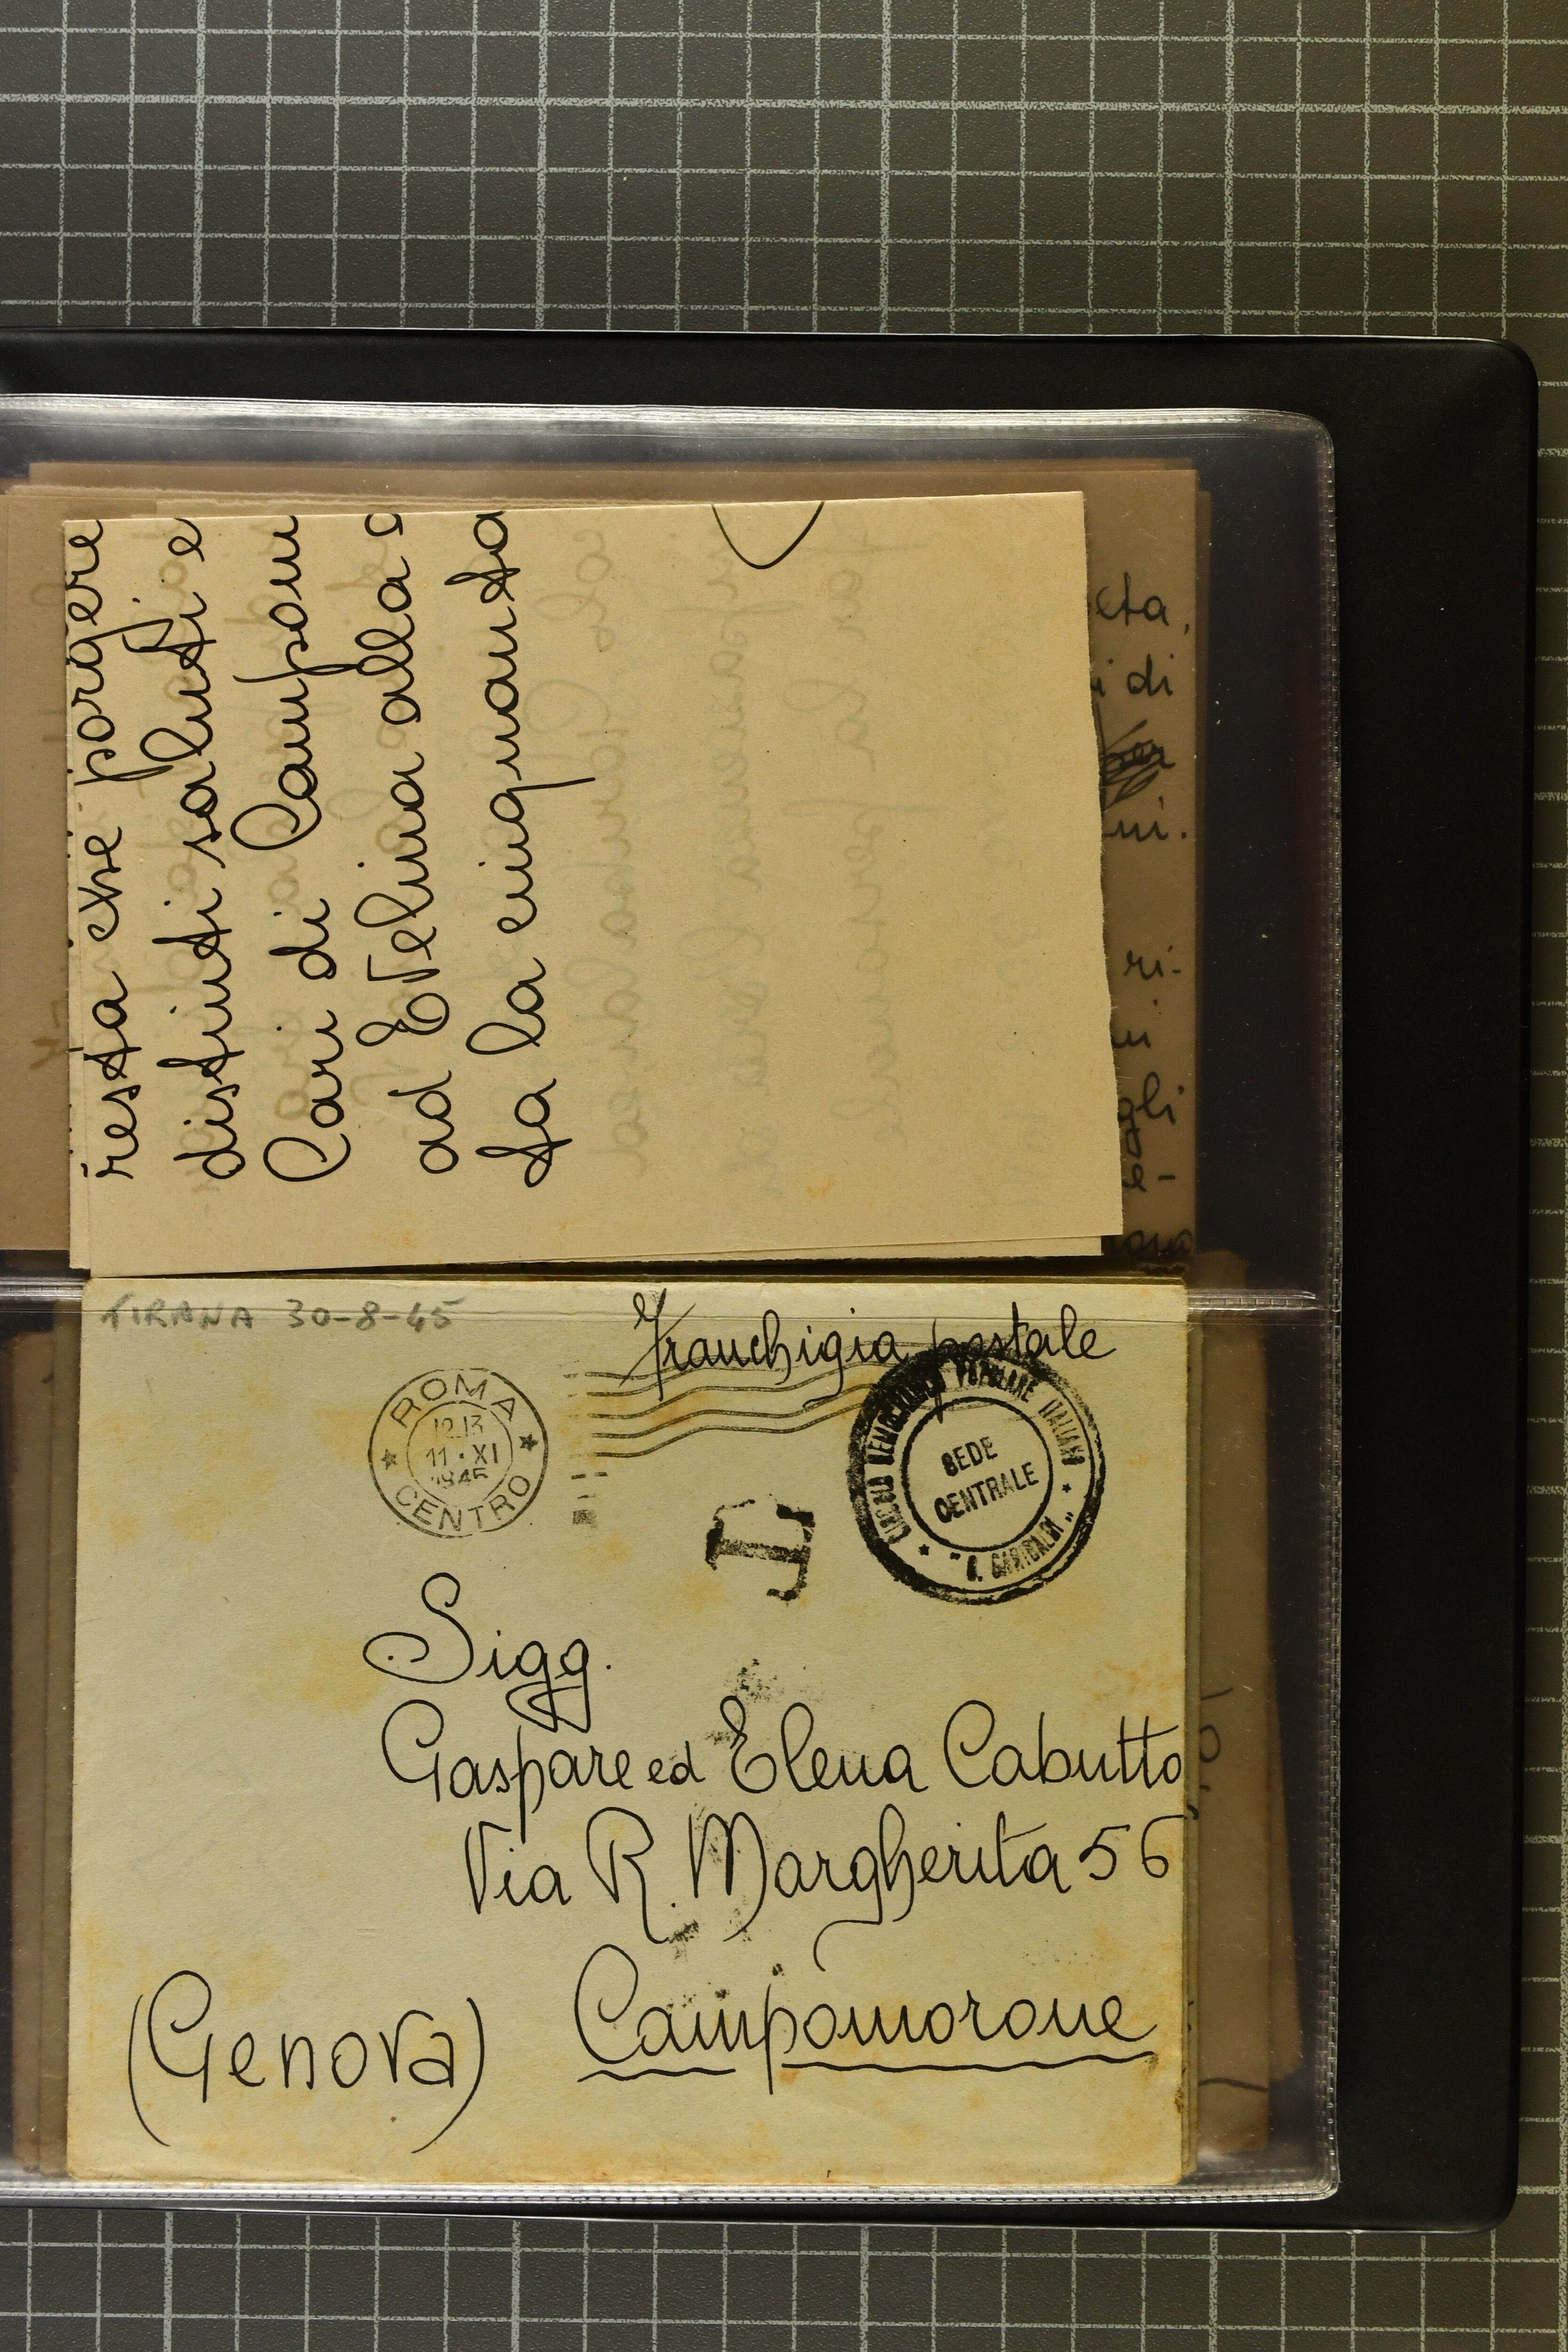 resta che porgere
distinti saluti e
Cari di Campom
ad Evelina alla
ta la cinquanta
eta,
i di
ni.
ri-
gli
e-
TIRANA 30-8-45
Franchigia postale
ROMA
12.13
11·XI
1945
CENTRO
CIRCOLO DEMOCRATICO POPOLARE ITALIANO
SEDE
CENTRALE
"G. GARIBALDI"
T
Sigg.
Gaspare ed Elena Cabutto
Via R. Margherita 56
Campomorone
(Genova)